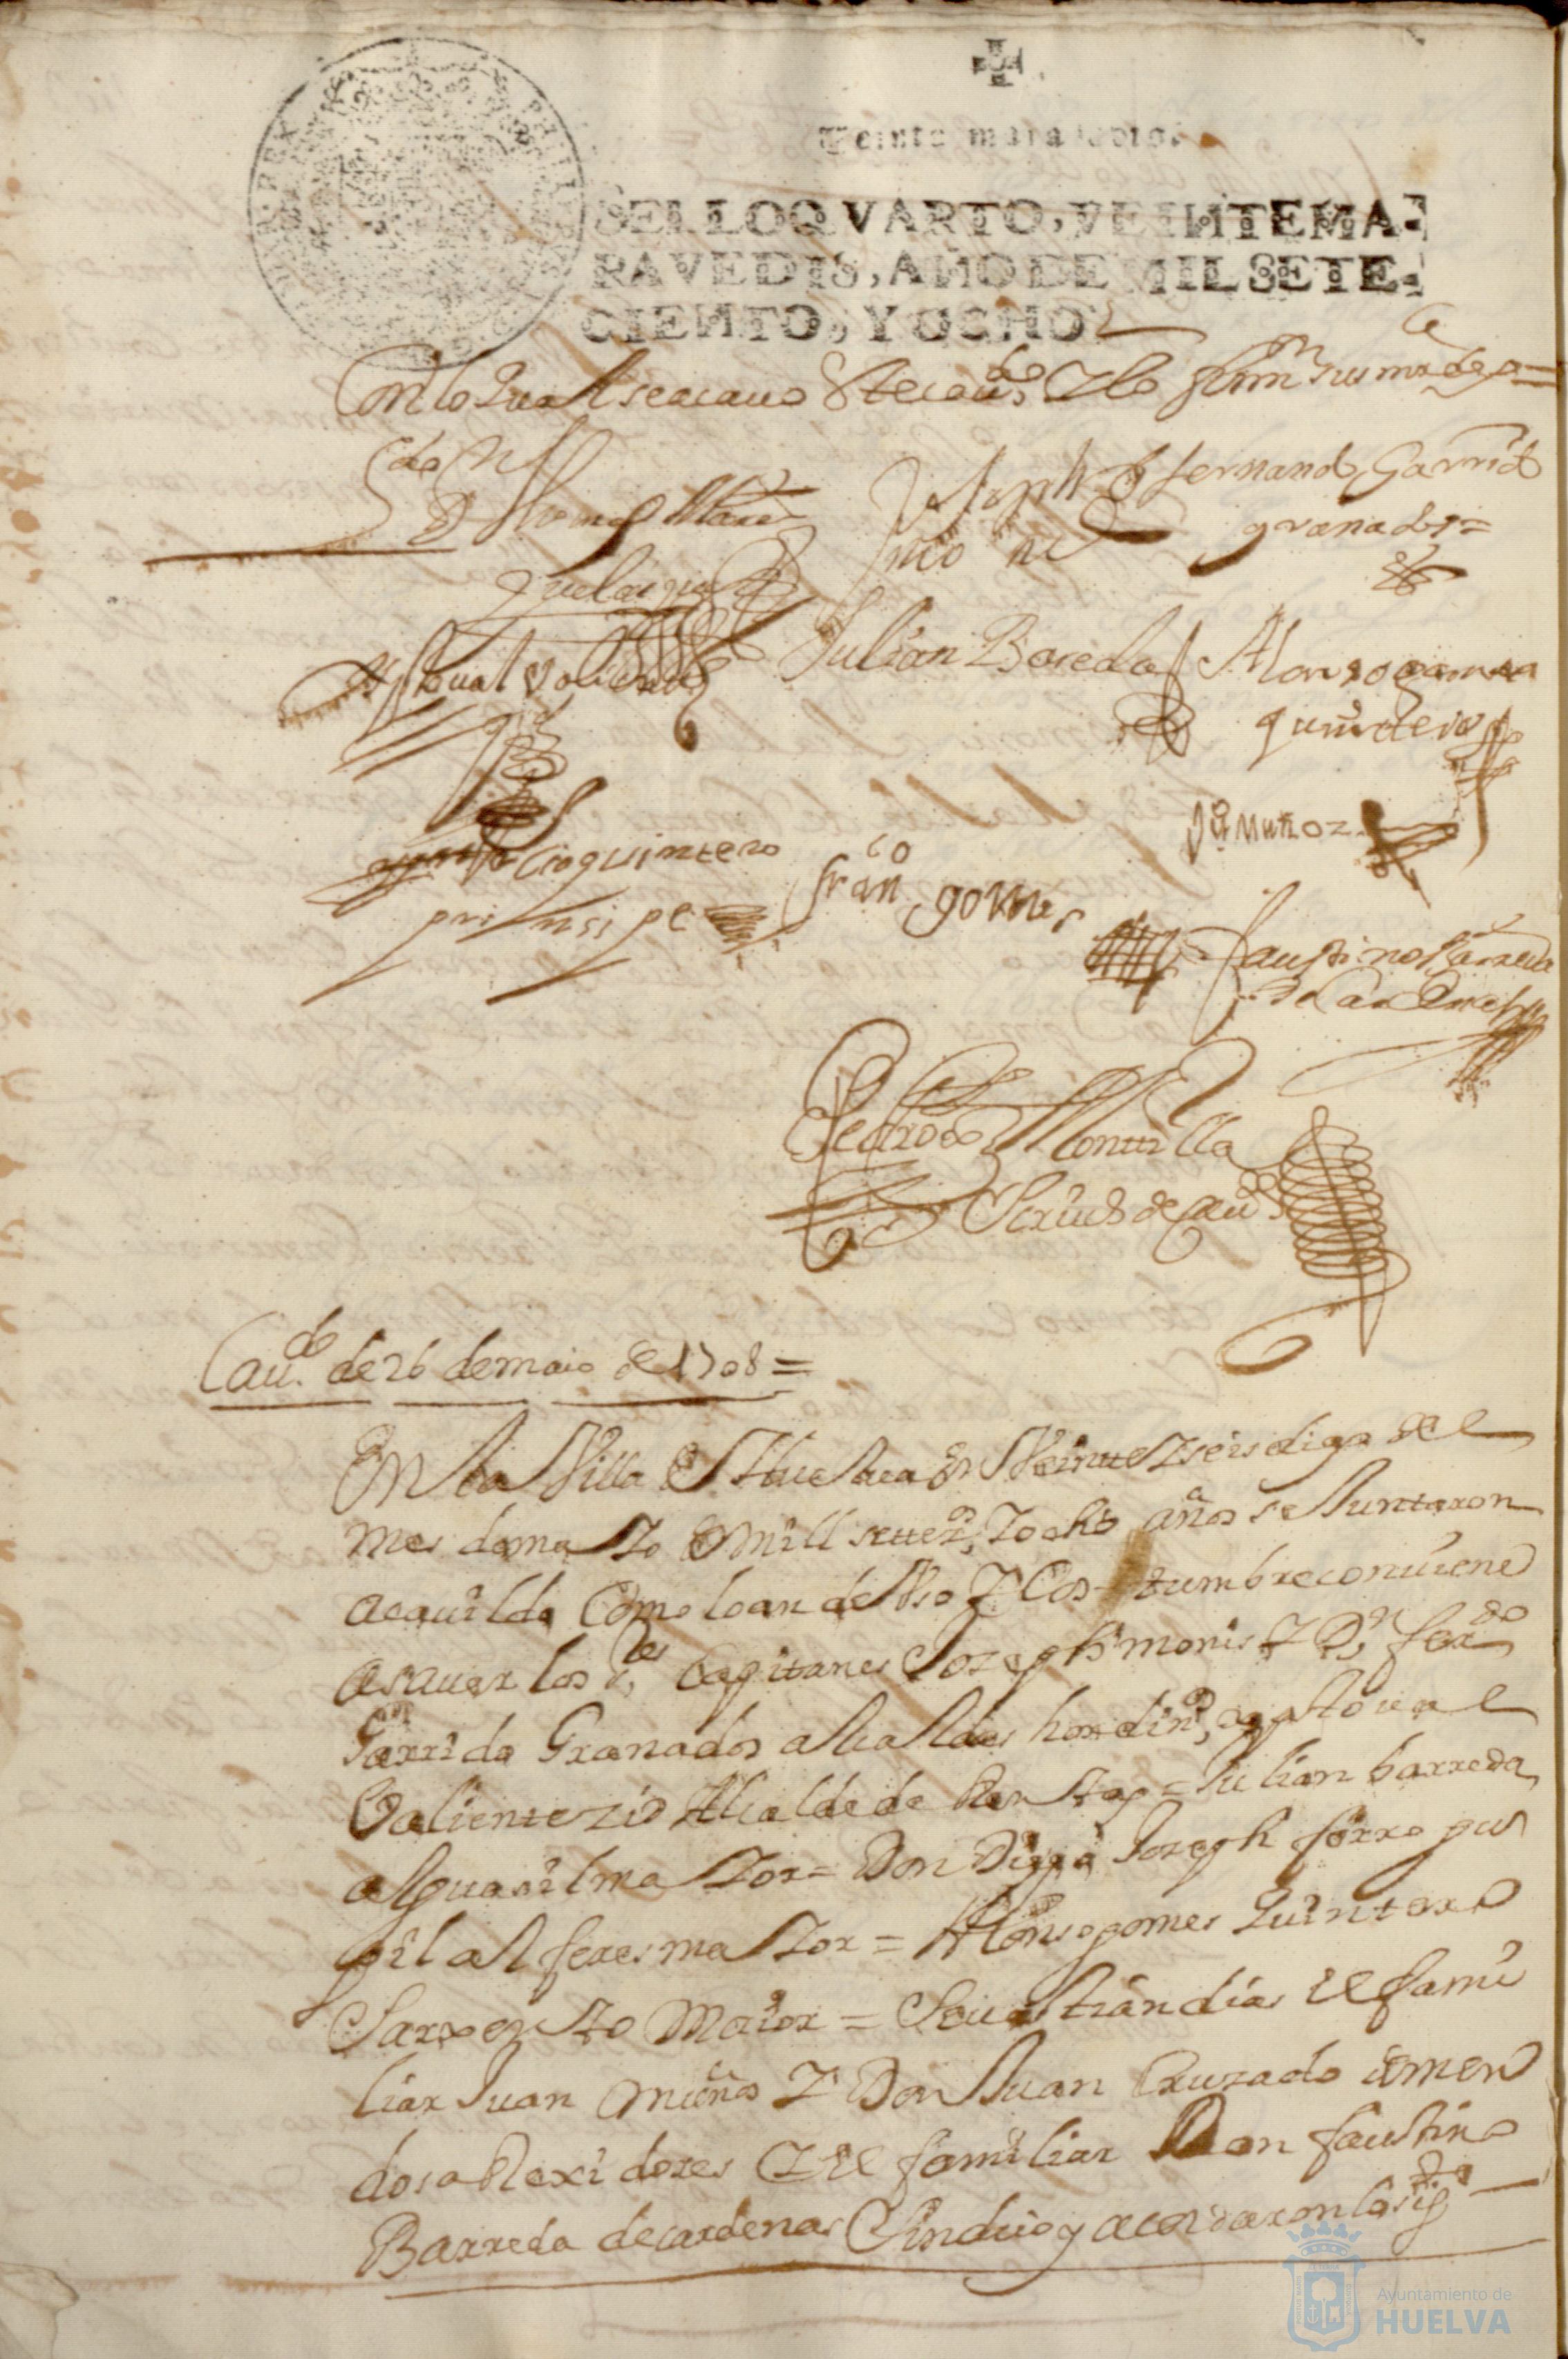 Veinte maravedis.
SELLO QVARTO, VEINTE MA-
RAVEDIS, AÑO DE MIL SETE-
CIENTO, Y OCHO
Con lo qual se acauo este cauдо Y lo firm
Joseph fernando Garrido
granados =
Julian Bareda Alonso gomes
quintero
Ju Muñoz
quintero
prinsipe
franco gomes
faustino Barreda
Pedro de Montilla
Scriuo de Cauo
Cauдо de 26 de maio de 1708 =
En la Villa de Huelua en Veinte Y seis dias del
mes de maYo de mill setteos, Y ocho años se Juntaron
acauildo Como lo an de Vso Y Costumbre conuiene
asauer los Ses Capitanes Joseph monis Y Dn ferdo
Garrido Granados alcaldes hordins, xptoual
Valiente zid Alcalde de = Julian barreda
alguasil maYor = Don Diego Joseph forro
gil alferes maYor = Alonso gomes Quintero
Sarxento Maior = Seuastian dias el fami
liar Juan muños Y Don Juan Cruzado de men
dosa Rexidores Y el familiar Don faustino
Barreda de cardenas Sindico y acordaron lo sigte
Ayuntamiento de
HUELVA